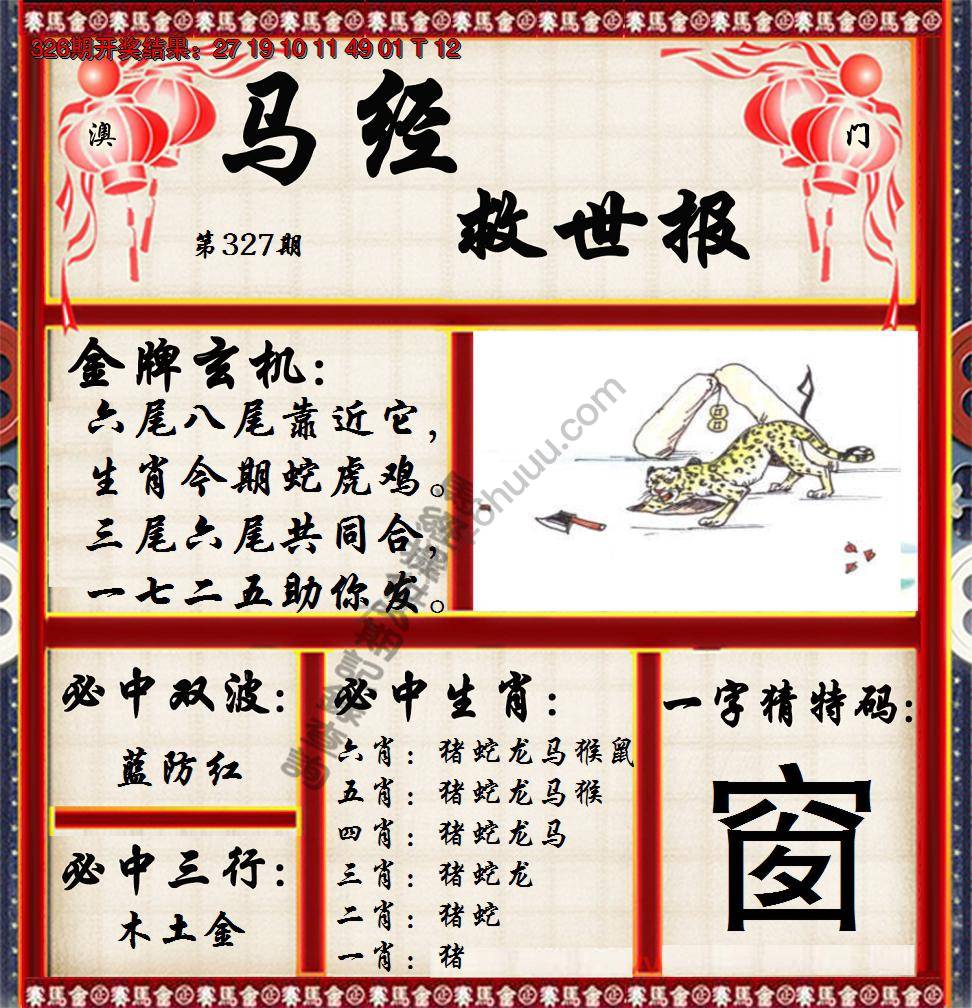 赛馬會 赛馬會 赛馬會 赛馬會 赛馬會 赛馬會 赛馬會
326期开奖结果：27 19 10 11 49 01 T 12
澳
门
马经
救世报
第327期
金牌玄机：
六尾八尾靠近它，
生肖今期蛇虎鸡。
三尾六尾共同合，
一七二五助你发。
必中双波：
蓝防红
必中三行：
木土金
必中生肖：
六肖：猪蛇龙马猴鼠
五肖：猪蛇龙马猴
四肖：猪蛇龙马
三肖：猪蛇龙
二肖：猪蛇
一肖：猪
一字猜特码：
窗